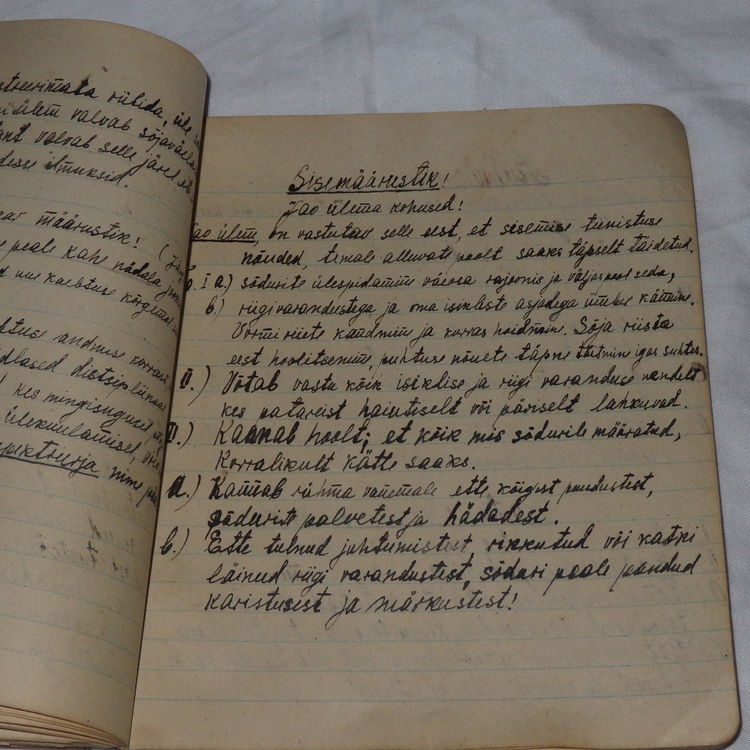 rübida, üle
ülem valvab sõjaväe
valvab selle järel et
ilmuksid.
määrustik!
peale kahe nädala
uue kaebtuse kõrgemal
andmise korras
distsiplinaar
kes mingisugused
ülekuulamisel, või
nime
Sisemäärustik!
Jao ülema kohused!
Jao ülem, on vastutav selle eest, et sisemise teenistuse
nõuded, temale alluvate poolt saaks täpselt täidetud.
I a.) sõdurite ülespidamine väeosa rajoonis ja väljaspool seda,
b) riigivarandustega ja oma isikliste asjadega ümber käimine.
Vormi riiete kandmine ja korras hoidmine. Sõja riista
eest hoolitsemine, puhtuse nõuete täpne täitmine igas suhtes.
II.) Võtab vastu kõik isiklise ja riigi varanduse nendelt
kes patareist ajutiselt või päriselt lahkuvad.
II.) Kannab hoolt; et kõik mis sõdurile määratud,
Korralikult kätte saaks.
a.) Kannab rühma vanemale ette kõigest puudustest,
sõdurite palvetest ja hädadest.
b.) Ette tulnud juhtumistest, rikkutud või katki
läinud riigi varandustest, sõduri peale pandud
karistusest ja märkustest!